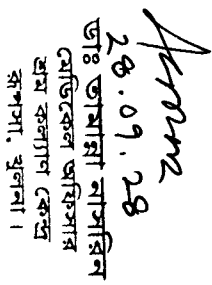 ২৪.০৭.২৪
ডাঃ তামান্না নাসরিন
মেডিকেল অফিসার
গ্রাম কল্যাণ কেন্দ্র
রূপসা, খুলনা।